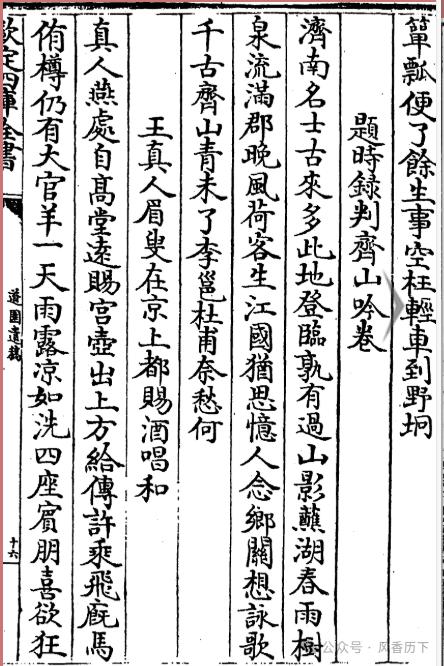 簞瓢便了餘生事空枉輕車到野坰
題時錄判齊山吟卷
濟南名士古來多此地登臨孰有過山影蘸湖春雨樹
泉流滿郡晚風荷客生江國猶思憶人念鄉關想詠歌
千古齊山青未了李邕杜甫奈愁何
王真人眉叟在京上都賜酒唱和
真人燕處自髙堂遠賜宫壺出上方給傳許乘飛廐馬
侑樽仍有大官羊一天雨露凉如洗四座賓朋喜欲狂
欽定四庫全書
道園遺稿
十六
公众号·风香历下